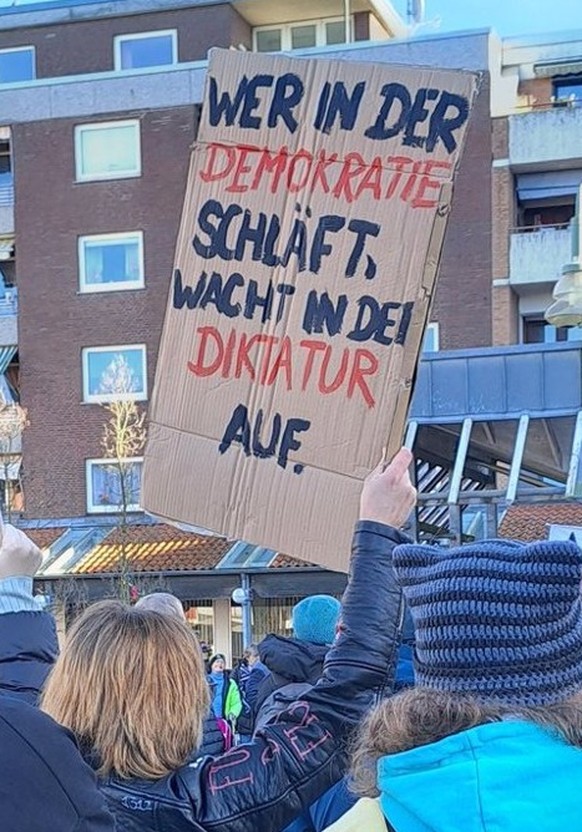 WER IN DER
DEMOKRATIE
SCHLÄFT,
WACHT IN DER
DIKTATUR
AUF.
1312